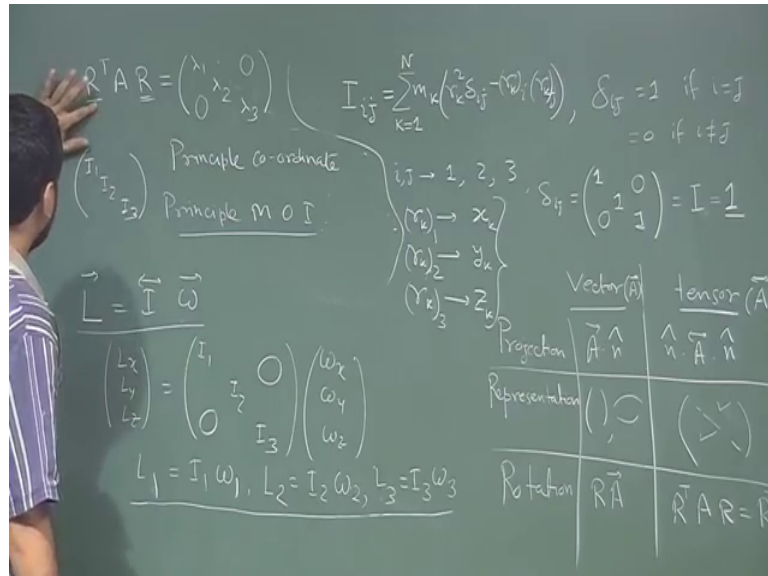 Rᵀ A R = (λ₁ 0 λ₂ 0 λ₃)
(I₁ I₂ I₃) Principle co-ordinate
Principle M O I
L⃗ = I⃡ ω⃗
(Lx Ly Lz) = (I₁ 0 I₂ 0 I₃) (ωx ωy ωz)
L₁ = I₁ ω₁, L₂ = I₂ ω₂, L₃ = I₃ ω₃
I_ij = Σ_{k=1}^{N} m_k (r_k² δ_ij − (r_k)_i (r_k)_j), δ_ij = 1 if i=J
= 0 if i≠J
i,J → 1, 2, 3
(r_k)₁ → x_k
(r_k)₂ → y_k
(r_k)₃ → z_k
δ_ij = (1 0 1 0 1) = I = 1
Vector (A⃗) tensor (A⃡
Projection A⃗·n̂ n̂·A⃡·n̂
Representation ( ),
Rotation R A⃗ Rᵀ A R = R